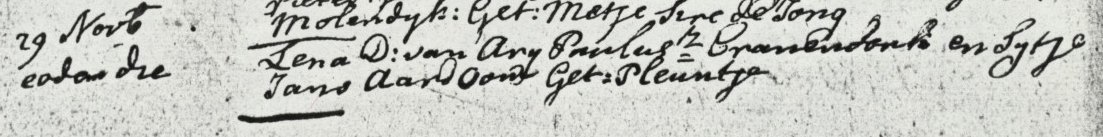 Molendyk: Get: Metje de Jong
29 Novb Lena D: van Ary Paulusz Cranendonk en Sytje
eodem die Jans Aardoom Get: Pleuntje